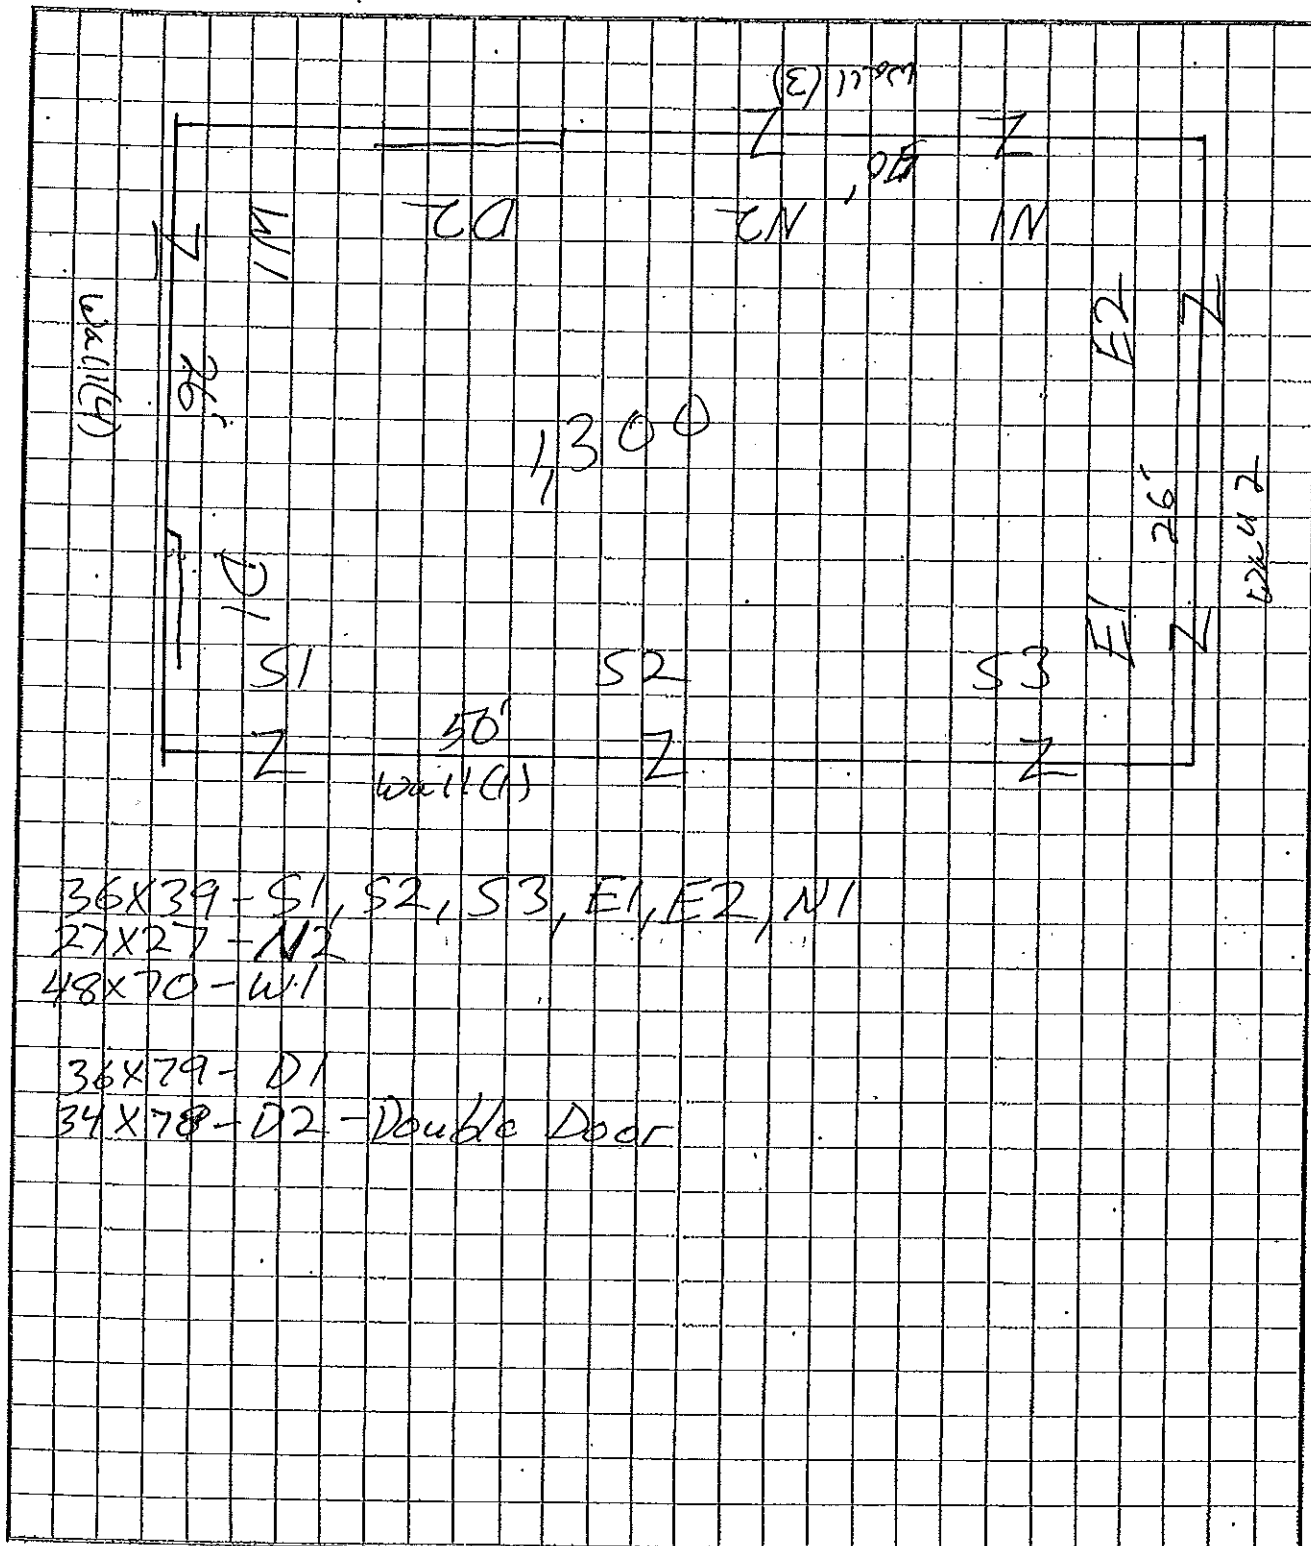 Wall (3)
50'
W1
D2
N2
N1
E2
Wall (4)
26'
1,300
26'
Wall 2
D1
E1
S1
S2
S3
50'
Wall (1)
36X39 - S1, S2, S3, E1, E2, N1
27X27 - N2
48X70 - W1
36X79 - D1
34X78 - D2 - Double Door